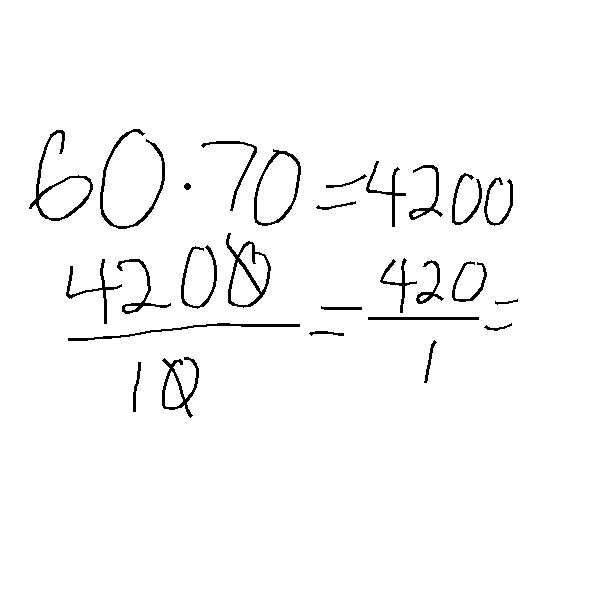 60·70=4200
4200/10=420/1=